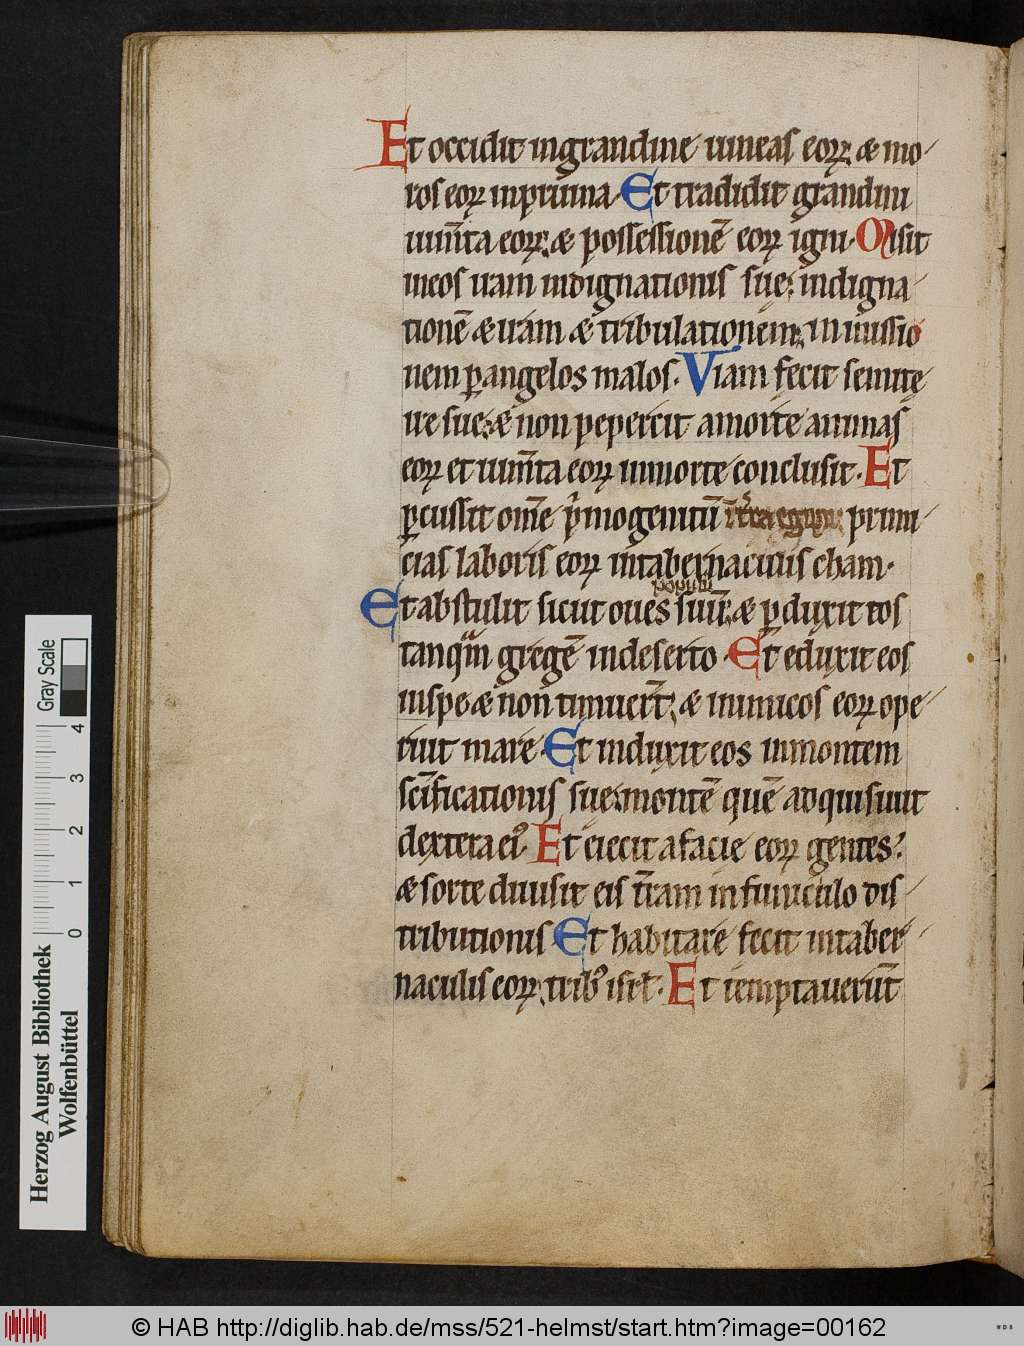 Et occidit ingrandine uineas eoꝝ; & mo-
ros eoꝝ inpruina. Et tradidit grandini
ium̅ta eoꝝ; & possessionē eoꝝ igni. Misit
ineos iram indignationis suę; indigna-
tionē & iram & tribulationem; inmissio
nem ꝑangelos malos. Viam fecit semitę
irę suę; & non pepercit amorte animas
eoꝝ et ium̅ta eoꝝ inmorte conclusit. Et
ꝑcussit om̅e pͥmogenitū int̅ra egypti primi-
cias laboris eoꝝ intabernaculis cham.
populū
Et abstulit sicut oues suū; & ꝑduxit eos
tanquͣm gregē indeserto. Et eduxit eos
inspe & non timuer̅t; & inimicos eoꝝ ope-
ruit mare. Et induxit eos inmontem
sc̅ificationis suę; montē quē adquisiuit
dextera eiꝰ. Et eiecit afacie eoꝝ gentes;
& sorte diuisit eis t̅ram in funiculo dis-
tributionis. Et habitare fecit intaber-
naculis eoꝝ; tribꝰ isrl̅. Et temptauerūt
Herzog August Bibliothek
Wolfenbüttel
Gray Scale
0 1 2 3 4
© HAB http://diglib.hab.de/mss/521-helmst/start.htm?image=00162